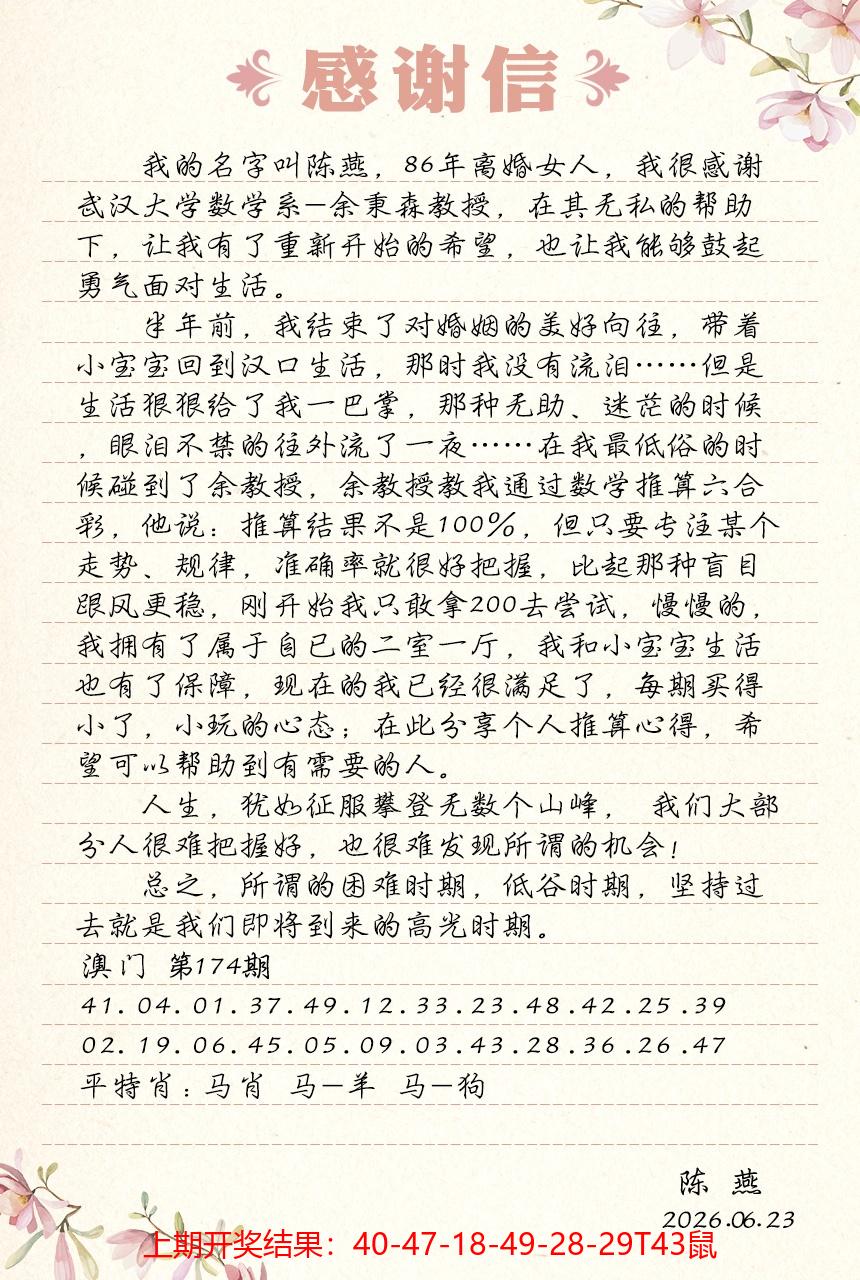 感谢信
我的名字叫陈燕，86年离婚女人，我很感谢
武汉大学数学系—余秉森教授，在其无私的帮助
下，让我有了重新开始的希望，也让我能够鼓起
勇气面对生活。
半年前，我结束了对婚姻的美好向往，带着
小宝宝回到汉口生活，那时我没有流泪……但是
生活狠狠给了我一巴掌，那种无助、迷茫的时候
，眼泪不禁的往外流了一夜……在我最低俗的时
候碰到了余教授，余教授教我通过数学推算六合
彩，他说：推算结果不是100%，但只要专注某个
走势、规律，准确率就很好把握，比起那种盲目
跟风更稳，刚开始我只敢拿200去尝试，慢慢的，
我拥有了属于自已的二室一厅，我和小宝宝生活
也有了保障，现在的我已经很满足了，每期买得
小了，小玩的心态；在此分享个人推算心得，希
望可以帮助到有需要的人。
人生，犹如征服攀登无数个山峰， 我们大部
分人很难把握好，也很难发现所谓的机会！
总之，所谓的困难时期，低谷时期，坚持过
去就是我们即将到来的高光时期。
澳门 第174期
41.04.01.37.49.12.33.23.48.42.25.39
02.19.06.45.05.09.03.43.28.36.26.47
平特肖：马肖 马—羊 马—狗
陈 燕
2026.06.23
上期开奖结果：40-47-18-49-28-29T43鼠